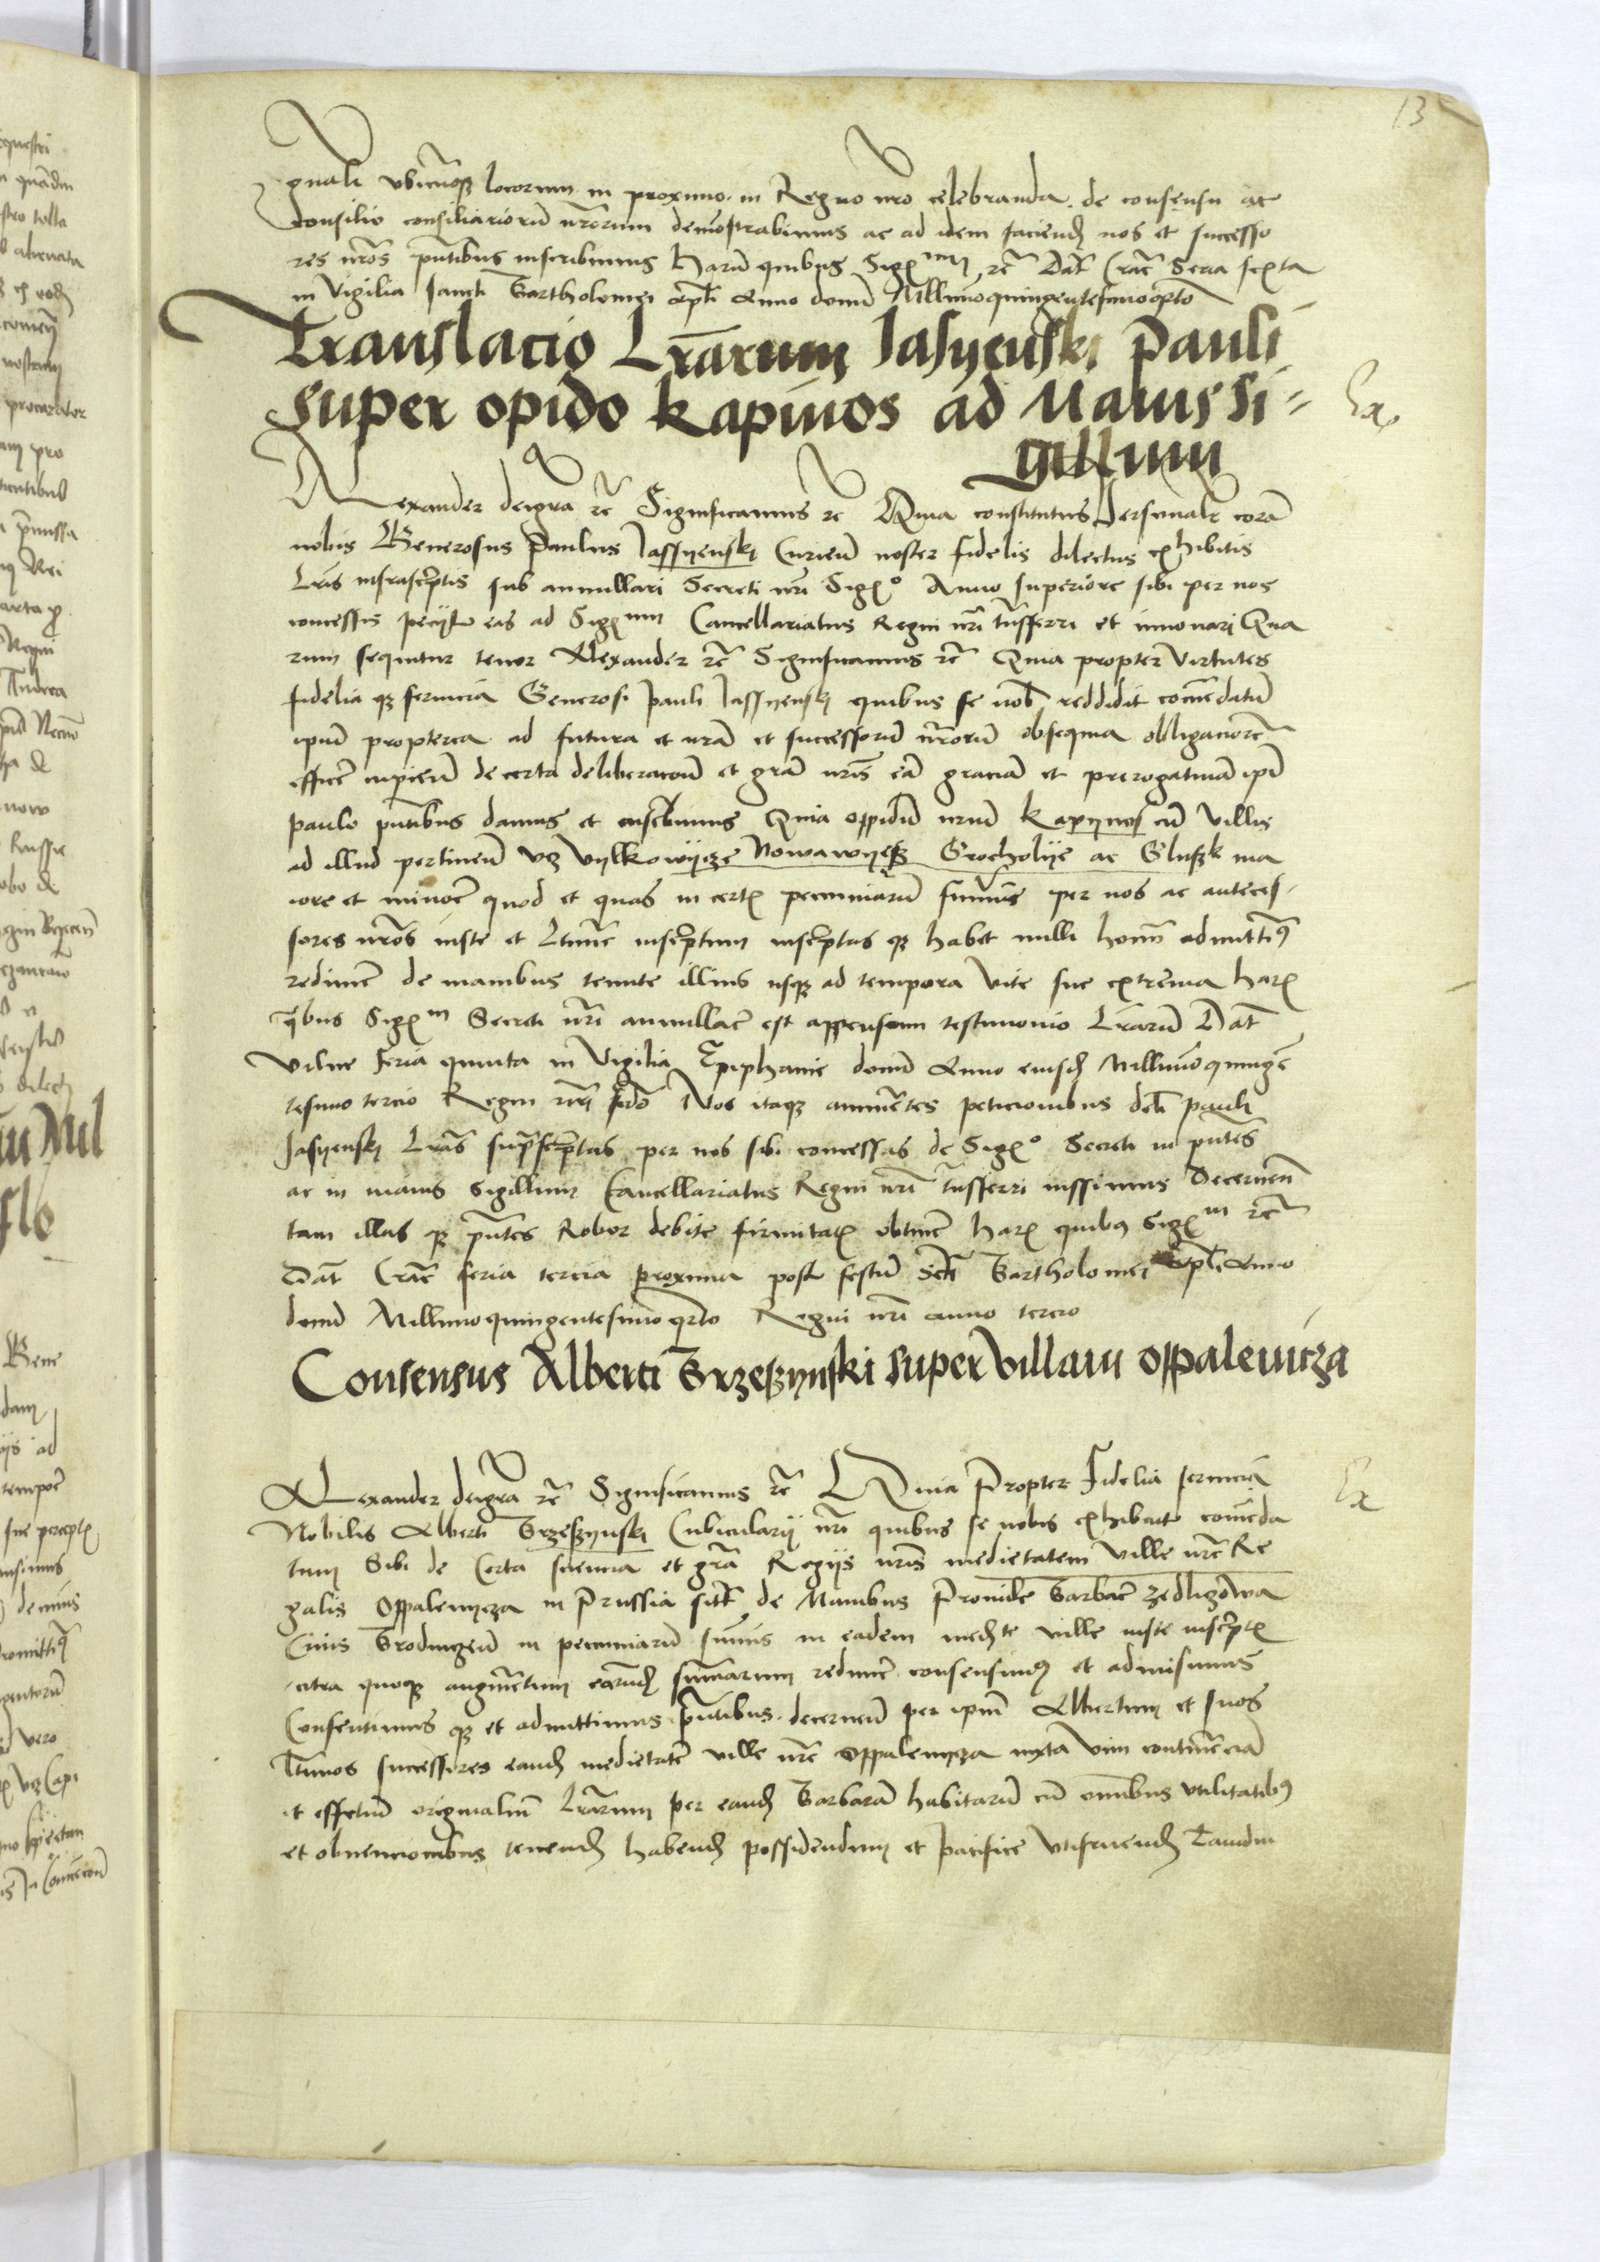 13
gnali ubicunq locorum in proximo in Regno nro celebranda de consensu ac
consilio consiliarioru nrorum demonstrabimus ac ad idem faciend nos et successo
res nros pntibus inscribimus Haru quibus Sigm rc Dat Crac Feria sexta
in Vigilia sancti Bartholomei apli Anno domi Millimoquingentesimoqrto
Translacio Lrarum Jasyenski Pauli
super opido Kapinos ad Maius si=
gillum
Ex
Alexander deigra rc Significamus rc Quia constitutus personalr cora
nobis Generosus Paulus Jassyenski Curien noster fidelis dilectus exhibitis
Lris infrascriptis sub annullari Secreti nri Sigo Anno superiore sibi per nos
concessis peciit eas ad Sigum Cancellariatus Regni nri tnsferri et innovari Qua
rum sequitur tenor Alexander rc Significamus rc Quia propter virtutes
fidelia q servicia Generosi Pauli Jassyenski quibus se nob reddidit comendatu
ipum propterea ad futura et nra et successoru nroru obsequia obligaciore
efficere cupien de certa deliberacone et gra nris ea gracia et prerogativa ipi
paulo pntibus damus et inscbimus Quia oppidu nrum Kapynos cu villis
ad illud pertinen vz Vylkowijcze Nowawyesz Grocholije ac Glussk ma
iore et minore quod et quas in cert pecuniaru sumis per nos ac anteces
sores nros iuste et Ltime inscriptum inscriptas q habet nulli homi admittim
redimere de manibus tenute illius usq ad tempora vite sue extrema Har
qbus Sigm Secreti nri annullare est appensum testimonio Lraru Dat
Vilne feria quinta in Vigilia Epiphanie domi Anno eiusd Millimoquinge
tesimo tercio Regni nri sedo Nos itaq annuentes peticionibus dcti pauli
Jasyenski Lras suprascriptas per nos sibi concessas de Sigo Secreti in pntes
ac in maius Sigillum Cancellariatus Regni nri tnsferri iussimus Decernen
tam illas q pntes Robor debite firmitat obtinere Har quibus Sigm rc
Dat Crac feria tercia proxima post festu Scti Bartholomei Apli Anno
domi Millimoquingentesimo qrto Regni nri anno tercio
Consensus Alberti Grzeszynski super Villam Oppalenicza
Ex
Alexander deigra rc Significamus rc Quia Propter Fidelia servicia
Nobilis Alberti Grzeszynski Cubicularij nri quibus se nobis exhibuit comeda
tum Sibi de Certa sciencia et gra Regijs nris medietatem Ville nre Re
galis Oppalenycza in Prussia sit de Manibus Provide Barbare Zedligowa
Civis Grodniczen in pecuniaru sumis in eadem medte ville iuste inscript
citra quoq augmentum earund summarum redimere consensim et admisimus
Consentimus q et admittimus pntibus decernen per ipum Albertum et suos
Ltimos successores eand medietate ville nre Oppalenycza iuxta vim continencia
et effectum originaliu Lrarum per eand Barbara habitaru cu omibus utilitatib
et obvencionibus tenend habend possidendum et pacifice utifruend Tamdiu